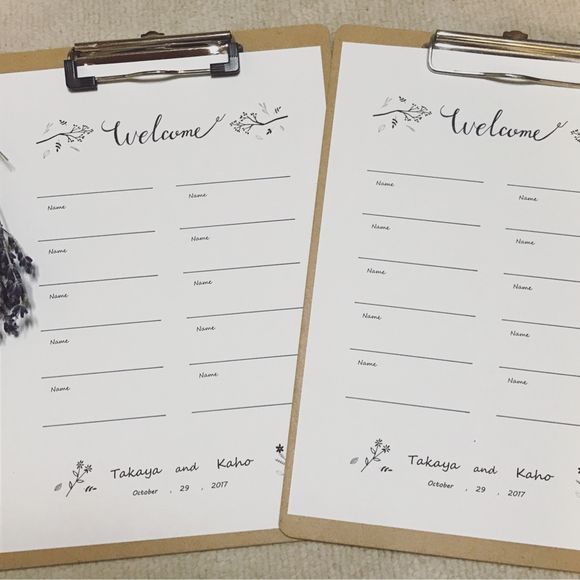 Welcome
Name Name
Name Name
Name Name
Name Name
Name Name
Takaya and Kaho
October , 29 , 2017
Welcome
Name Name
Name Name
Name Name
Name Name
Name Name
Takaya and Kaho
October , 29 , 2017